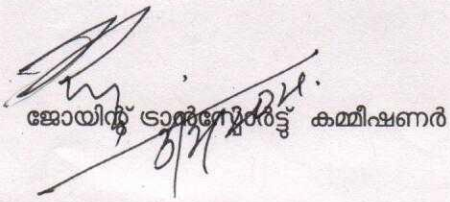 ജോയിന്റ് ട്രാൻസ്പോർട്ട് കമ്മീഷണർ